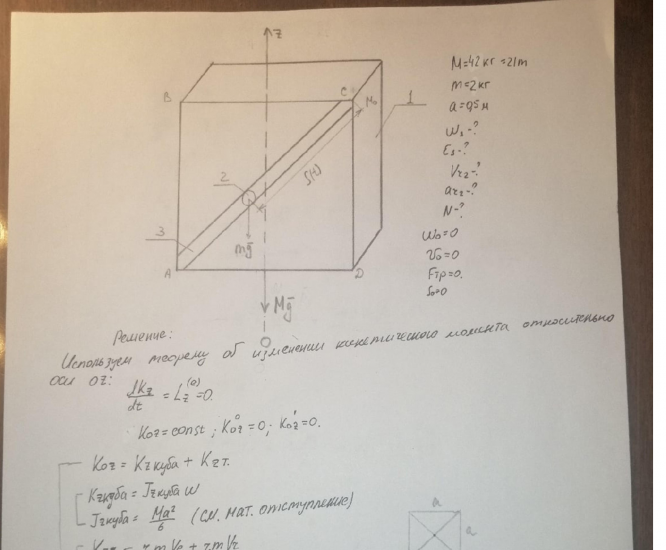 z
B
C
M₀
1
2
S(t)
3
mg̅
A
D
Mg̅
O
M=42кг =21m
m=2кг
a=0,5м
ω₁-?
ε₁-?
Vr₂-?
ar₂-?
N-?
ω₀=0
v₀=0
Fтр=0.
S₀=0
Решение:
Используем теорему об изменении кинетического момента относительно
оси oz:
dKz/dt = Lz⁽⁰⁾=0.
Koz=const ; K⁰oz=0; K'oz=0.
Koz = Kzкуба + Kzт.
Kzкуба = Jzкуба ω
Jzкуба = Ma²/6 (см. мат. отступление)
a
a